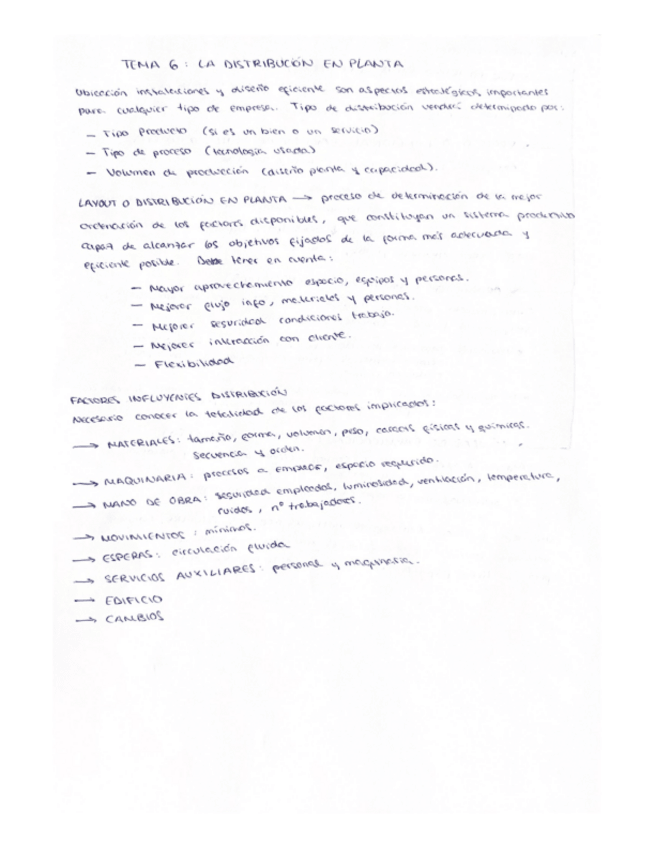 TEMA 6: LA DISTRIBUCIÓN EN PLANTA
Ubicación instalaciones y diseño eficiente son aspectos estratégicos importantes
para cualquier tipo de empresa. Tipo de distribución vendrá determinado por:
— Tipo Producto (si es un bien o un servicio)
— Tipo de proceso (tecnología usada)
— Volumen de producción (diseño planta y capacidad).
LAYOUT O DISTRIBUCIÓN EN PLANTA → proceso de determinación de la mejor
ordenación de los factores disponibles, que constituyan un sistema productivo
capaz de alcanzar los objetivos fijados de la forma más adecuada y
eficiente posible. Debe tener en cuenta:
— Mayor aprovechamiento espacio, equipos y personas.
— Mejorar flujo info, materiales y personas.
— Mejorar seguridad condiciones trabajo.
— Mejorar interacción con cliente.
— Flexibilidad
FACTORES INFLUYENTES DISTRIBUCIÓN
Necesario conocer la totalidad de los factores implicados:
→ MATERIALES: tamaño, forma, volumen, peso, caract físicas y químicas.
secuencia y orden.
→ MAQUINARIA: procesos a emplear, espacio requerido.
→ MANO DE OBRA: seguridad empleados, luminosidad, ventilación, temperatura,
ruidos, nº trabajadores.
→ MOVIMIENTOS: mínimos.
→ ESPERAS: circulación fluida
→ SERVICIOS AUXILIARES: personal y maquinaria.
→ EDIFICIO
→ CAMBIOS